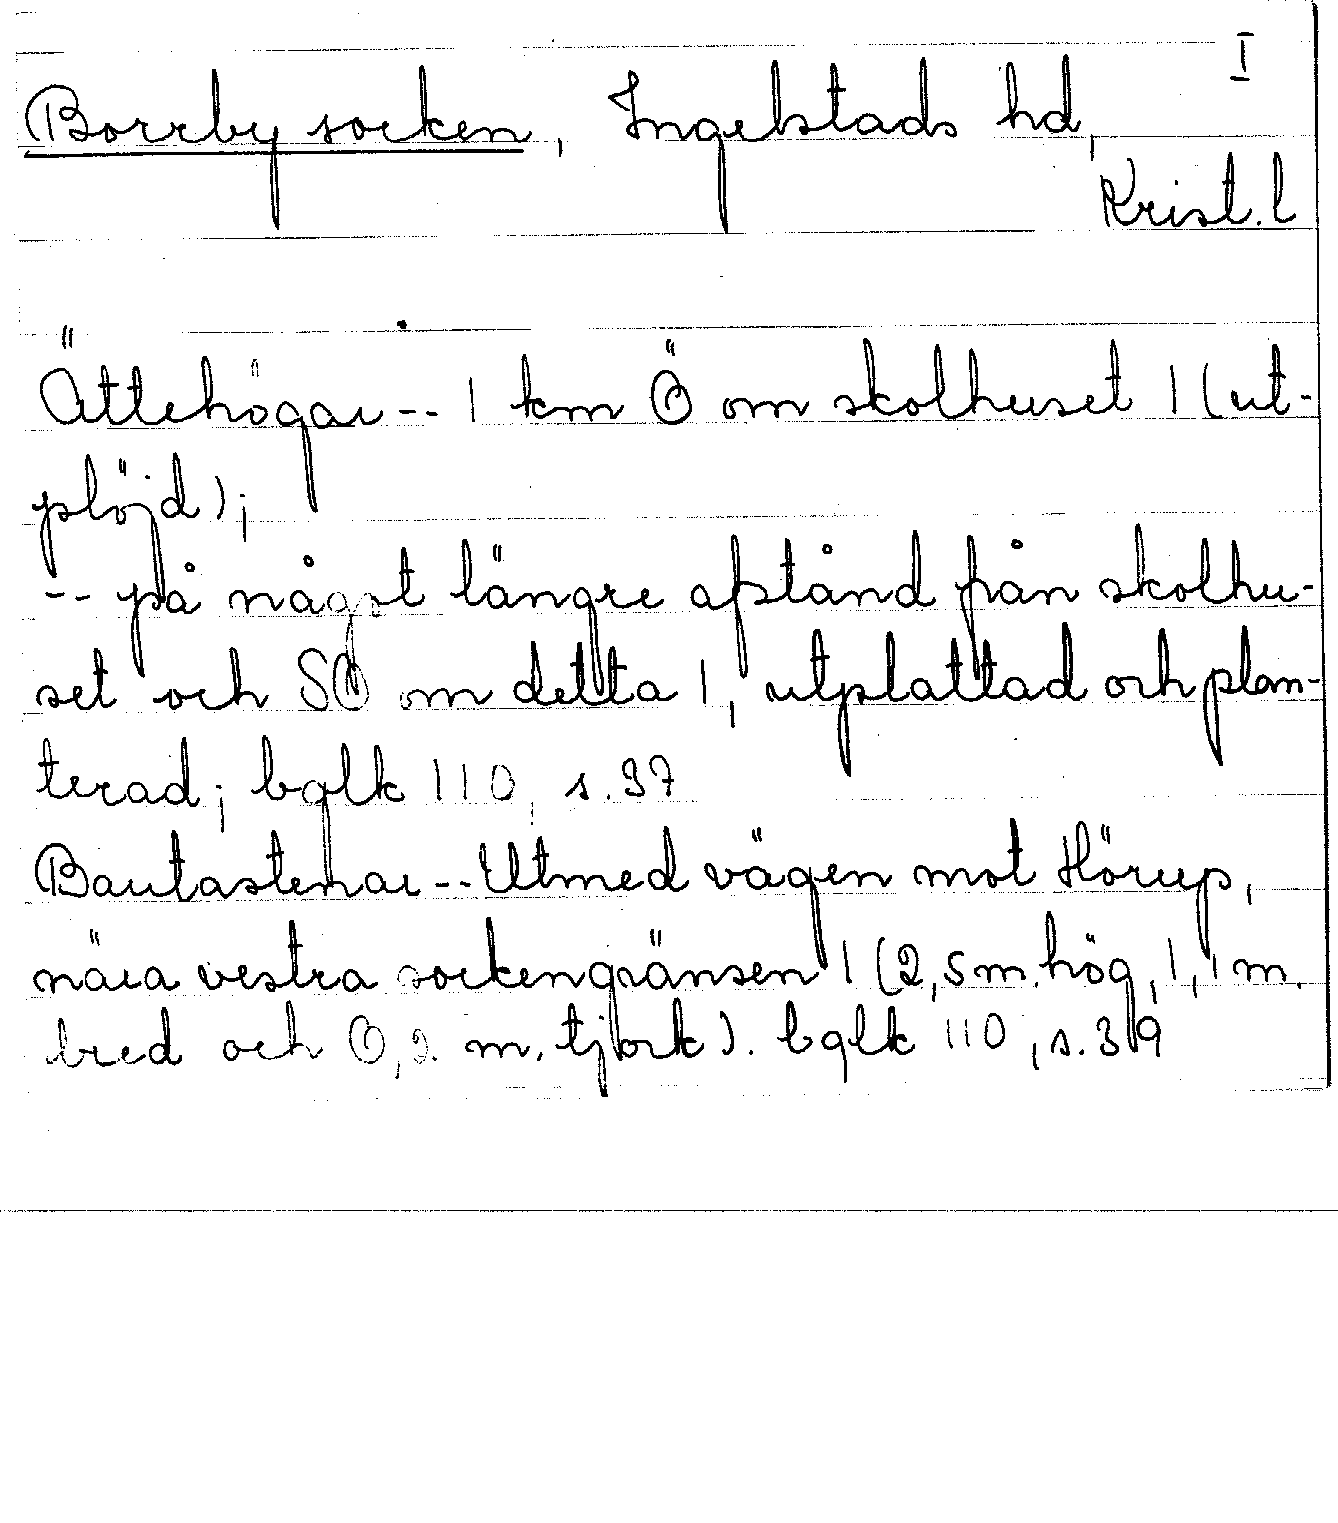 I
Borrby socken, Ingelstads hd,
Krist. l
Ättehögar -- 1 km Ö om skolhuset 1 (ut-
plöjd);
-- på något längre afstånd från skolhu-
set och SO om detta 1, utplattad och plan-
terad; bglk 110, s. 37
Bautastenar -- Utmed vägen mot Hörup,
nära vestra sockengränsen 1 (2,5 m. hög, 1,1 m.
bred och 0,2. m. tjock). bglk 110, s. 39